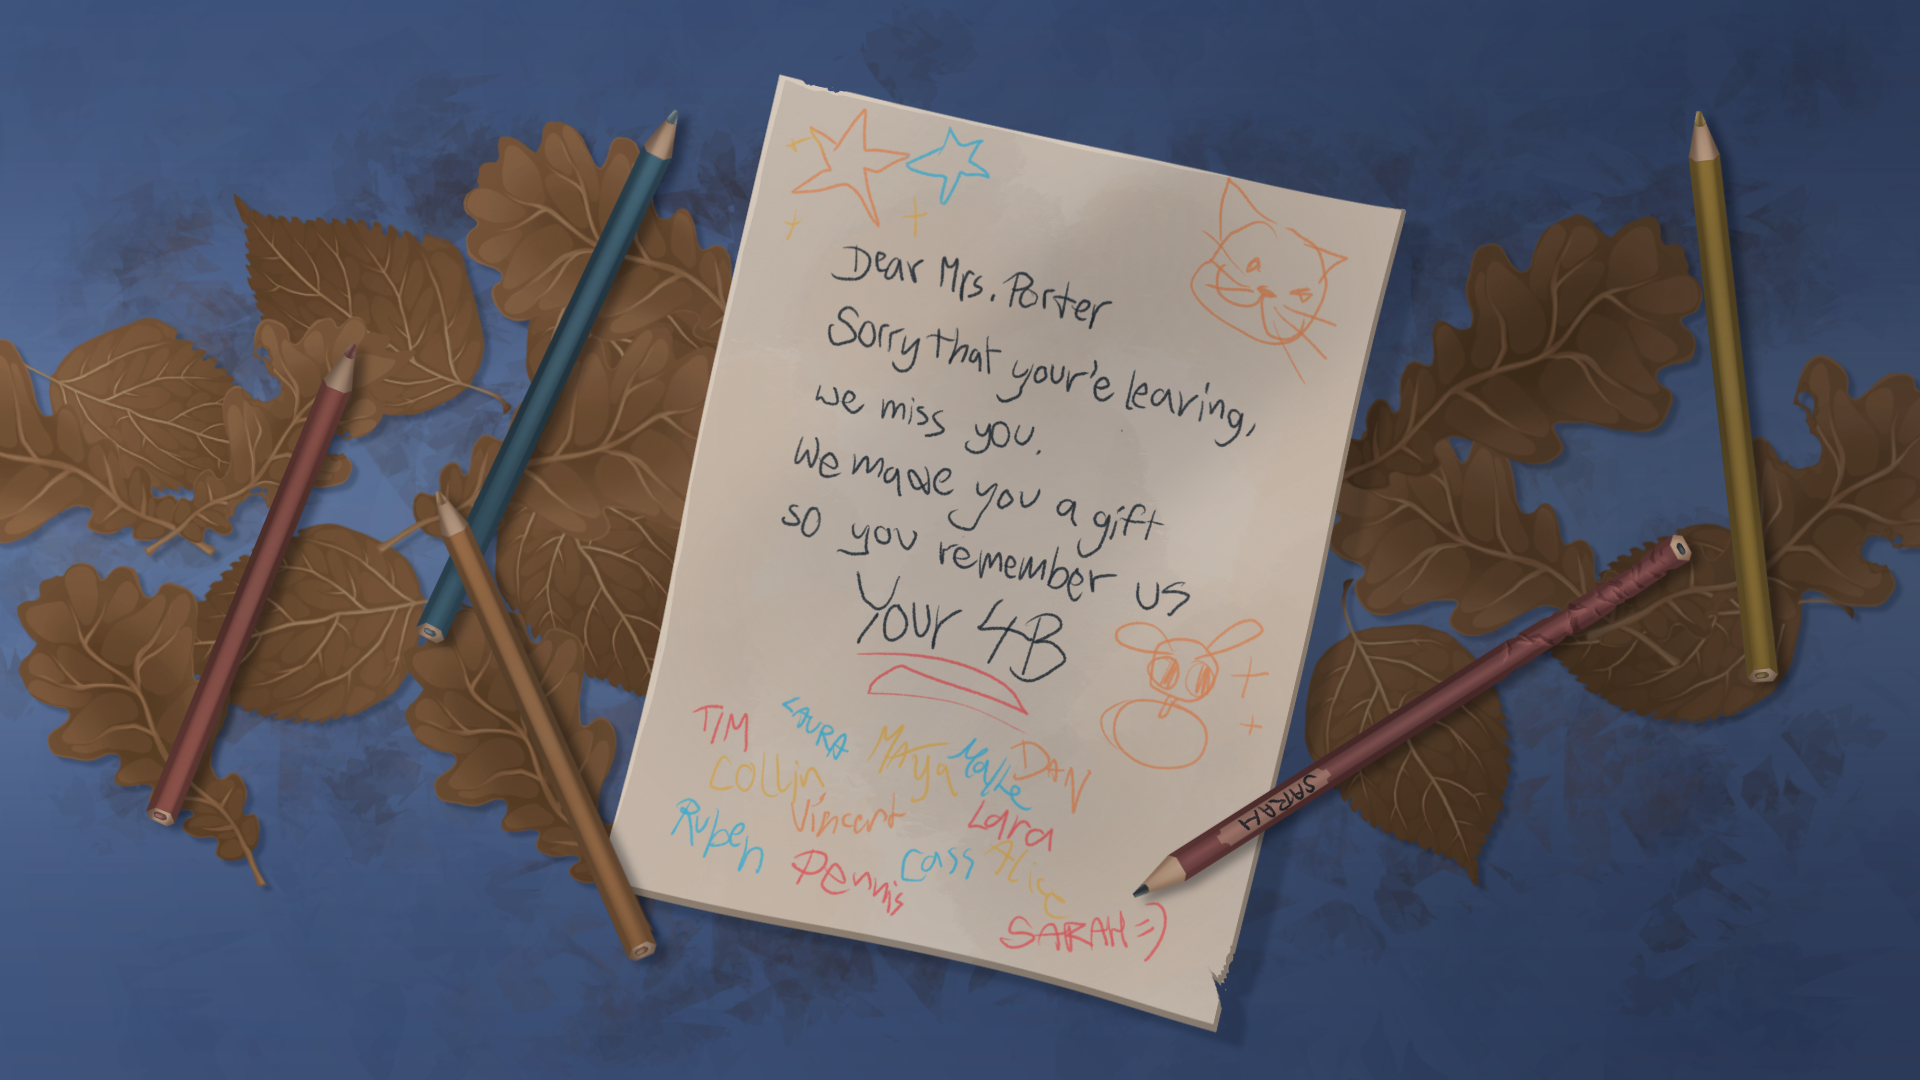 Dear Mrs. Porter
Sorry that your'e leaving,
we miss you.
We made you a gift
so you remember us
Your 4B
TIM LAURA MAya Malte DAN
Collin Vincent Lara
Ruben Dennis Cass Alice
SARAH =)
SARAH